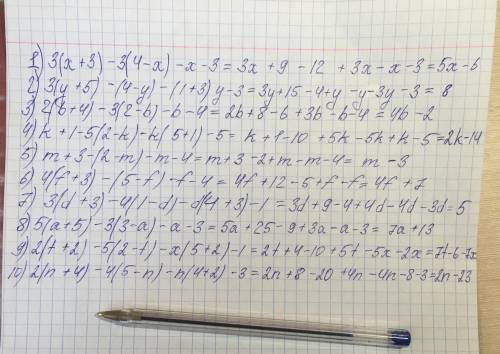 1) 3(x+3) -3(4-x) -x-3 = 3x +9 -12 +3x -x-3 = 5x-6
2) 3(y+5) -(4-y) -(1+3)y-3 = 3y+15-4+y -y-3y-3 = 8
3) 2(b+4) -3(2-b) -b-4 = 2b+8-6+3b-b-4 = 4b-2
4) k+1-5(2-k)-k(5+1)-5 = k+1-10 +5k-5k+k-5=2k-14
5) m+3-(2-m)-m-4 = m+3-2+m-m-4= m-3
6) 4(f+3) -(5-f)-f-4 = 4f+12-5+f-f=4f+7
7) 3(d+3) -4(1-d) -d(4+3)-1 = 3d+9-4+4d-4d-3d=5
8) 5(a+5) -3(3-a) -a-3 = 5a+25-9+3a-a-3= 7a+13
9) 2(t+2) -5(2-t) -x(5+2)-1 = 2t+4-10+5t-5x-2x=7t-6-7x
10) 2(n+4) -4(5-n) -n(4+2) -3 = 2n+8-20 +4n-4n-8-3=2n-23